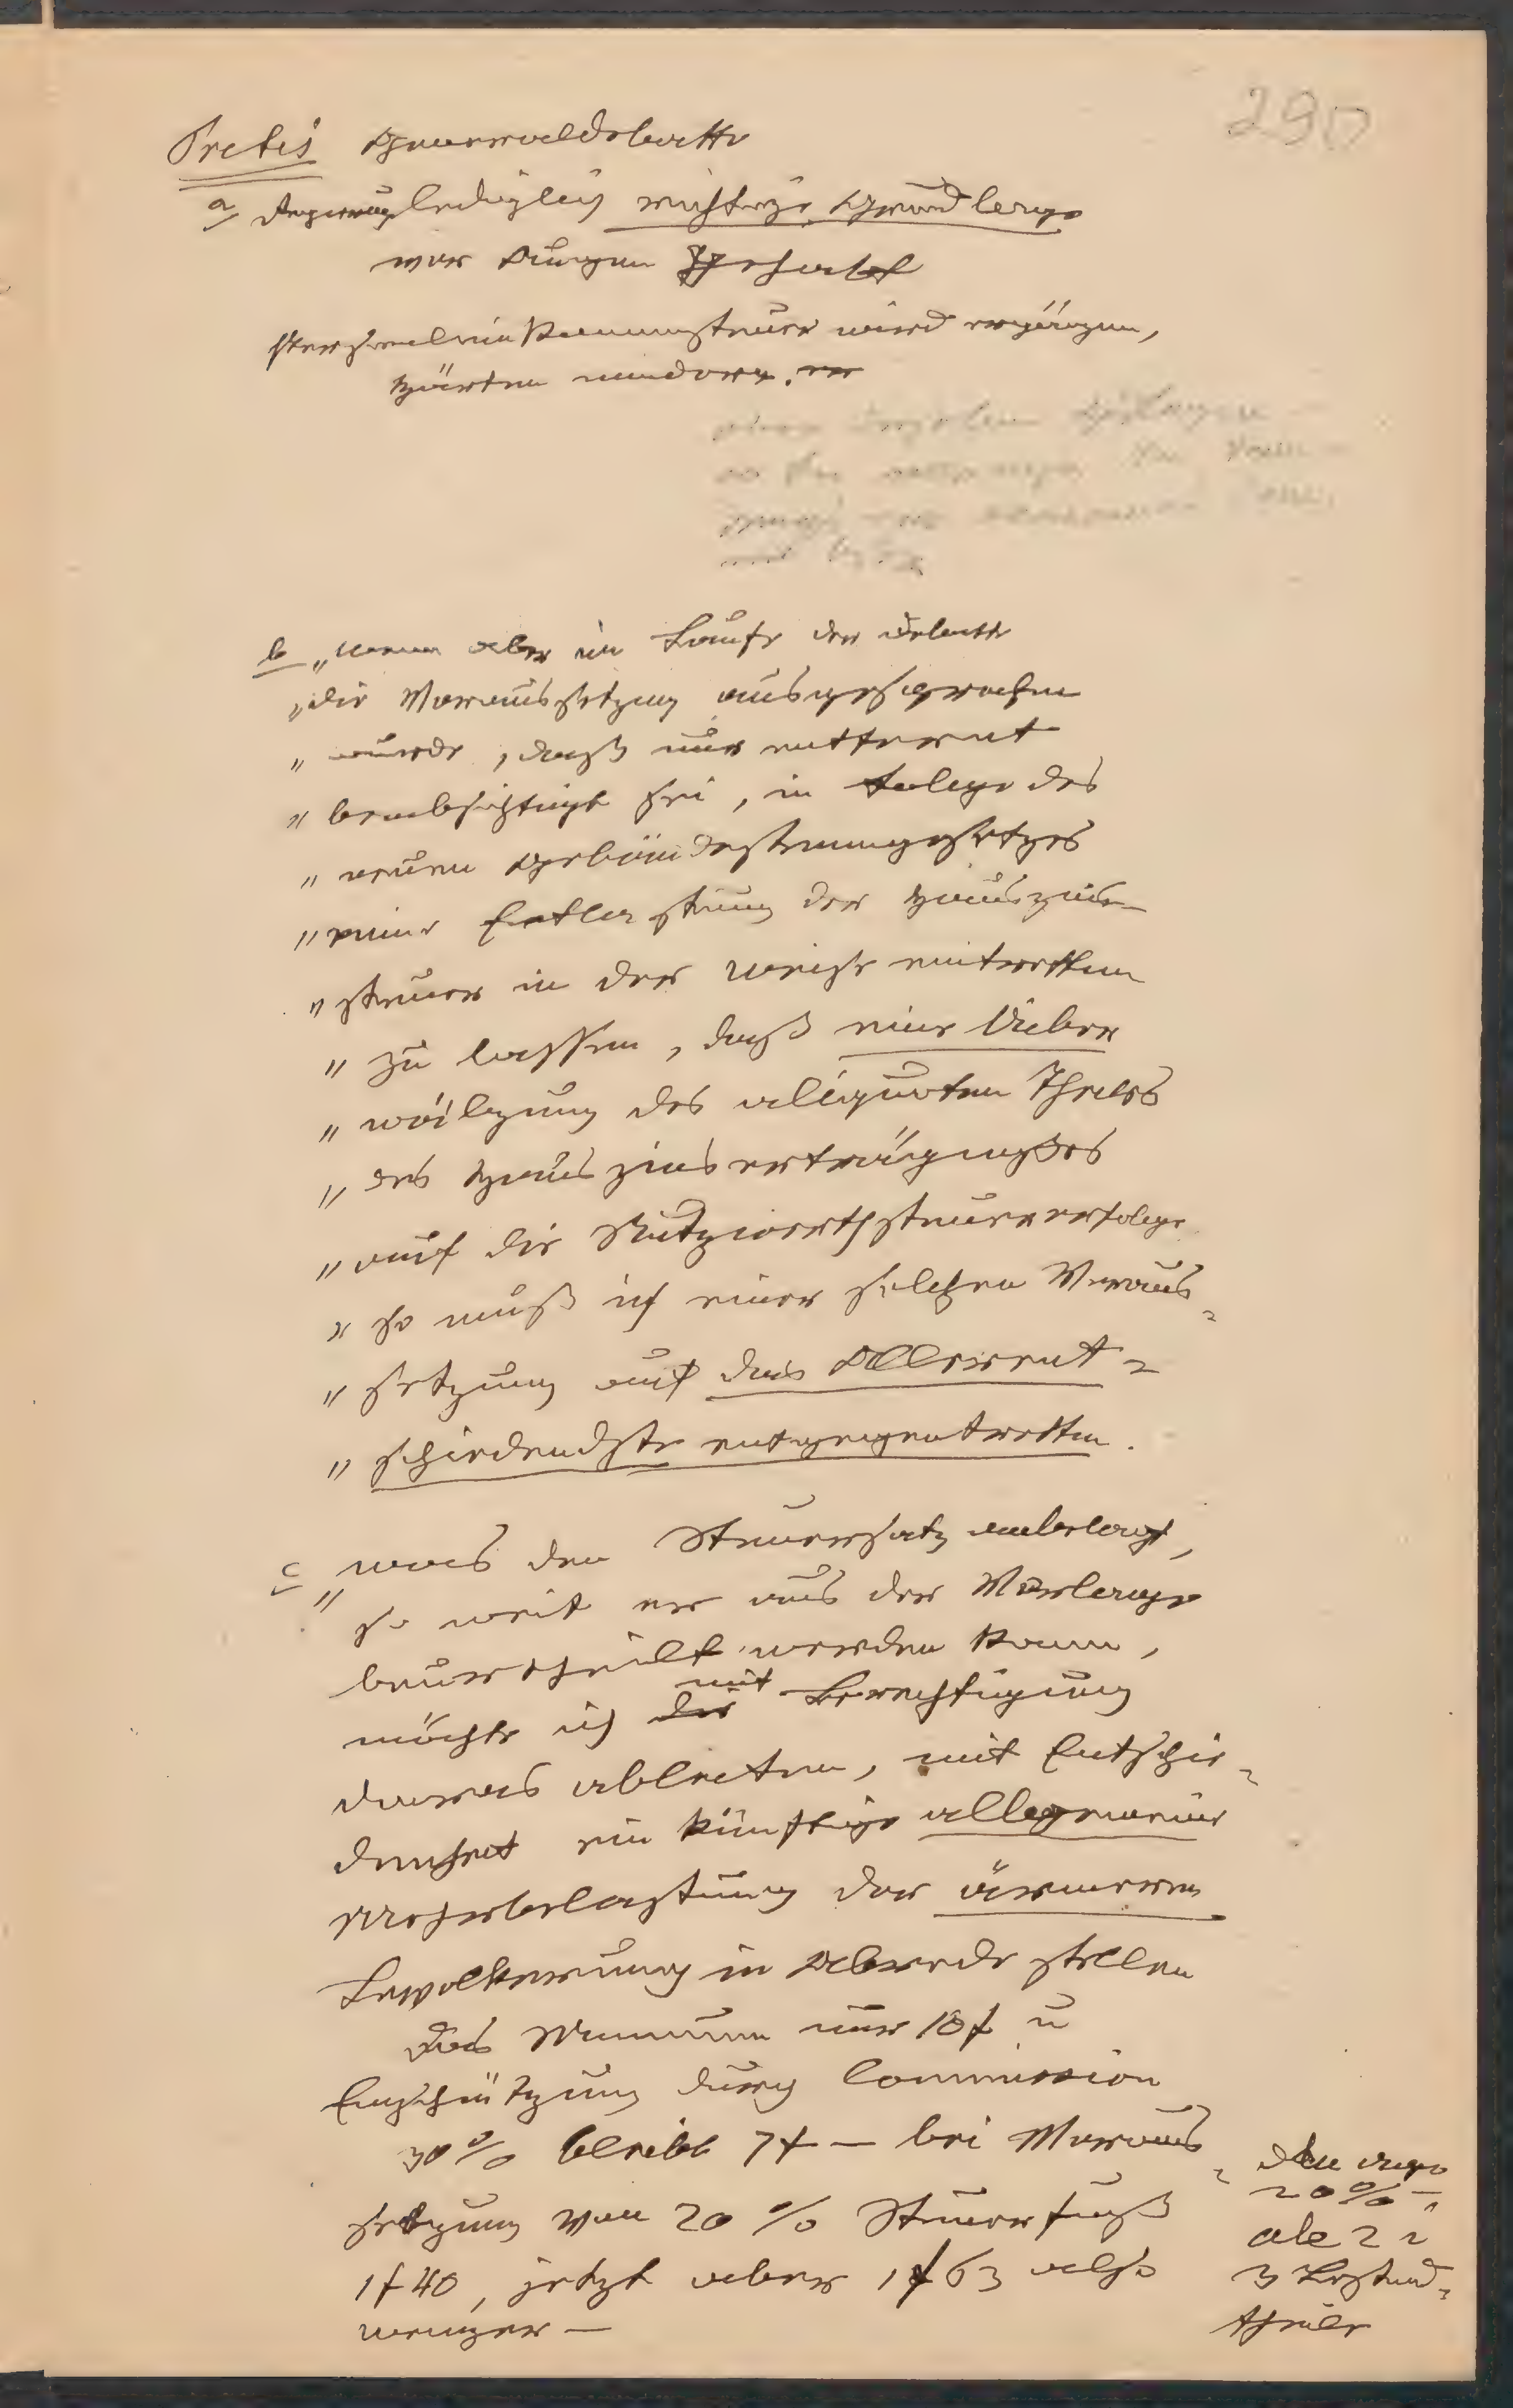 290
Pretis Generaldebatte
a, Regierung lediglich wichtige Grundlage
vor Augen gehabt
Personaleinkommensteuer wird ergänzen,
Härten mindern.
b „Wenn aber im Laufe der Debatte
„die Voraussetzung ausgesprochen
„wurde, daß nur
„beabsichtigt sei, in Folge des
„neuen Gebäudesteuergesetzes
„eine Entlastung der Hauszins-
„steuer in der Weise eintretten
„zu lassen, daß eine Ueber
„wälzung des aliquoten Theiles
„des Hauszinserträgnißes
„auf die Nutzwerthsteuer erfolge
„so muß ich einer solchen Voraus-
„setzung auf das Allerent-
„schiedendste entgegentretten.
c „was den Steuersatz anbelangt,
so weit er aus der Vorlage
beurtheilt werden kann,
möchte ich mit Berechtigung
daraus ableiten, mit Entschie-
denheit ein künftige allgemeine
Mehrbelastung der ärmeren
Bevölkerung in Abrede stellen
Das Minimum nur 10 f u
Einschätzung durch Commission
30% bleibt 7 f — bei Voraus
setzung von 20 % Steuerfuß
1 f 40, jetzt aber 1 f 63 also
weniger —
20% -
als 2 u
3 Bestand-
theile